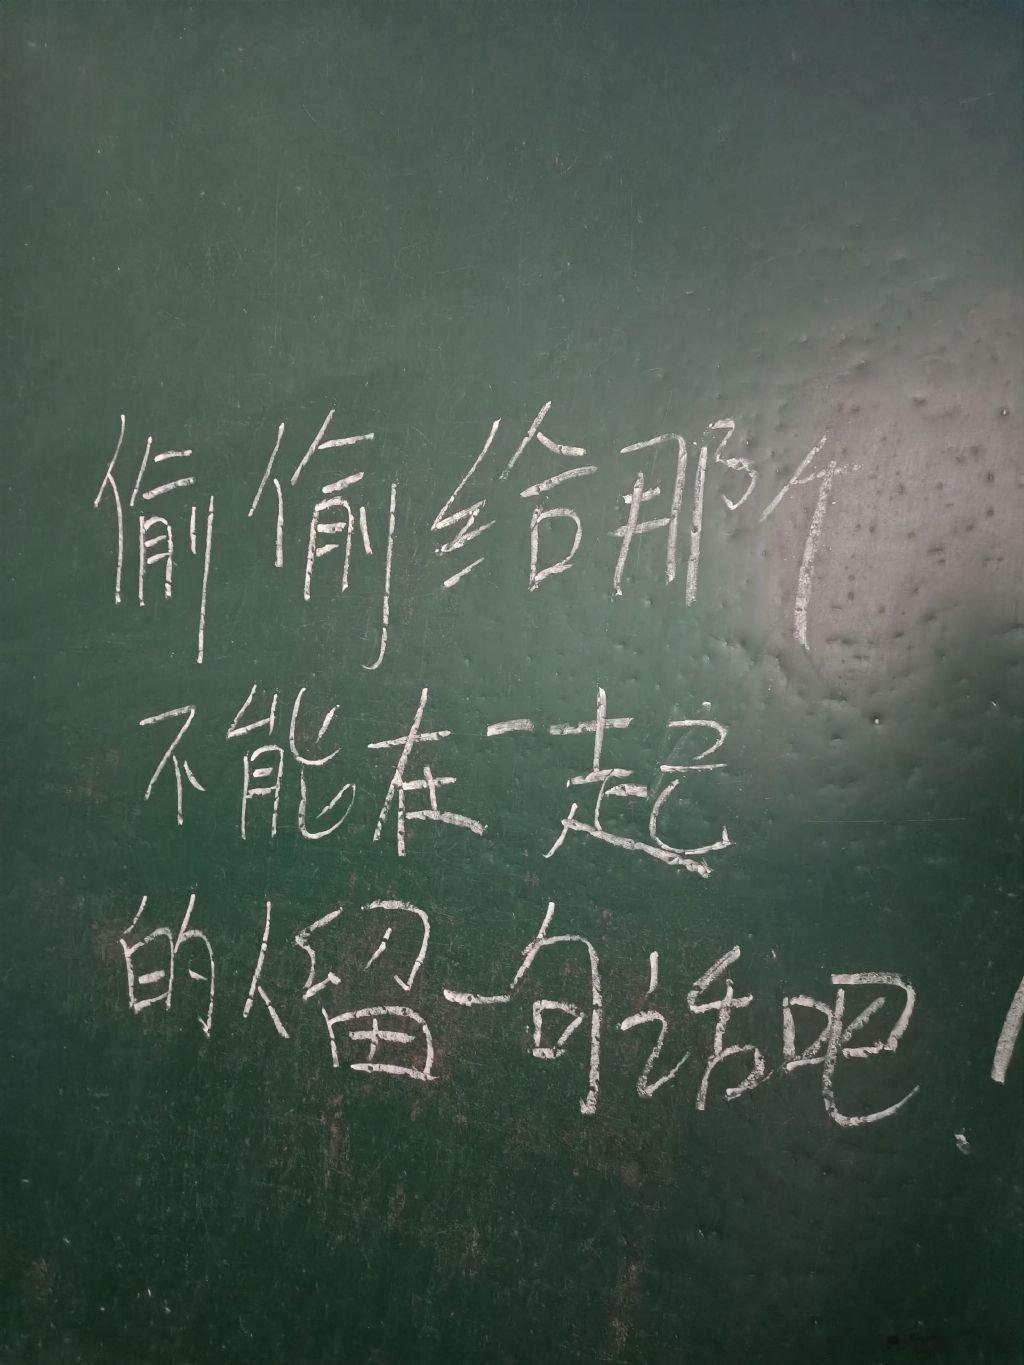 偷偷给那个
不能在一起
的人留一句话吧